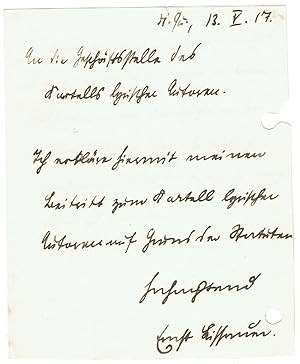 13. V. 17.
An die Geschäftsstelle des
Kartells lyrischer Autoren.
Ich erkläre hiermit meinen
Beitritt zum Kartell lyrischer
Autoren auf Grund der Statuten
Hochachtend
Ernst Lissauer.